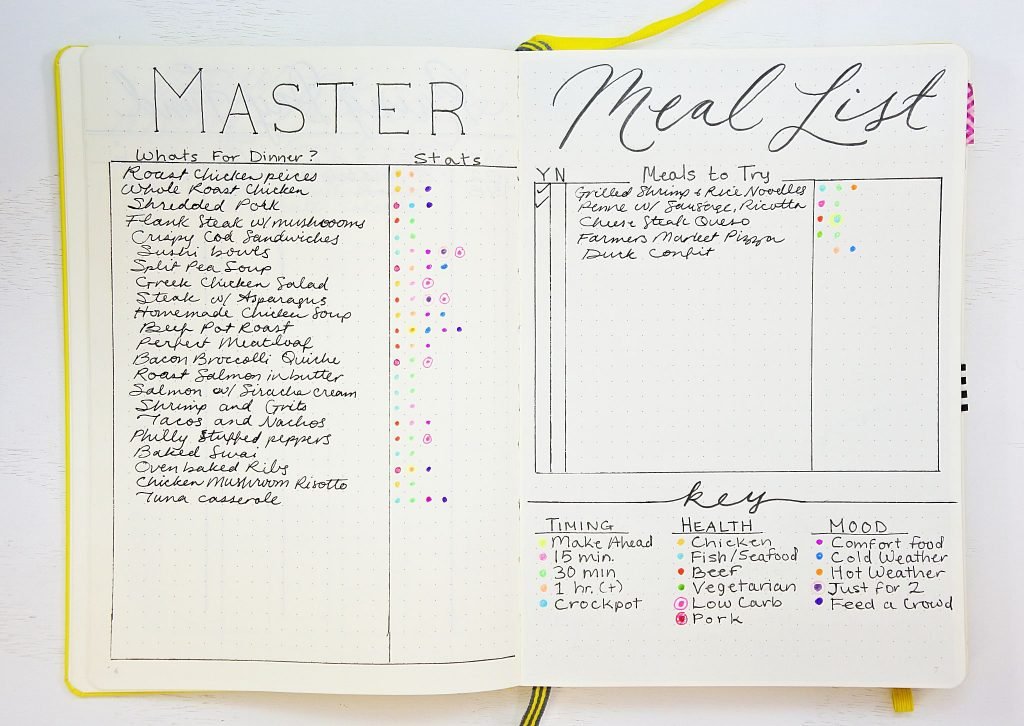 MASTER
Whats For Dinner?
Stats
Roast Chicken peices
Whole Roast Chicken
Shredded Pork
Flank Steak w/ mushrooms
Crispy Cod Sandwiches
Sushi bowls
Split Pea Soup
Greek Chicken Salad
Steak w/ Asparagus
Homemade Chicken Soup
Beef Pot Roast
Perfect Meatloaf
Bacon Broccolli Quiche
Roast Salmon in butter
Salmon w/ Siracha cream
Shrimp and Grits
Tacos and Nachos
Philly Stuffed peppers
Baked Swai
Oven baked Ribs
Chicken Mushroom Risotto
Tuna casserole
Meal List
Y N
Meals to Try
Grilled Shrimp & Rice Noodles
Penne w/ Sausage, Ricotta
Cheese Steak Queso
Farmers Market Pizza
Duck Confit
key
TIMING
Make Ahead
15 min.
30 min
1 hr. (+)
Crockpot
HEALTH
Chicken
Fish/Seafood
Beef
Vegetarian
Low Carb
Pork
MOOD
Comfort food
Cold Weather
Hot Weather
Just for 2
Feed a Crowd